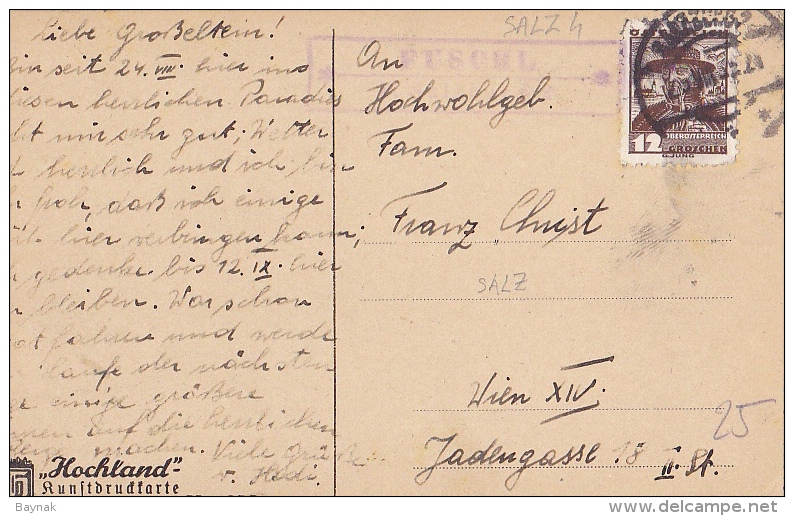 Liebe Großeltern!
bin seit 24. VIII. hier ins
diesen herrlichen Paradies
mir sehr gut; Wetter
herrlich und ich bin
froh, daß ich einige
hier verbringen kann;
gedenke bis 12. IX. hier
bleiben. War schon
fahren und werde
laufe der nächsten
einige größere
auf die herrlichen
machen. Viele Grüße
v. Hedi.
"Hochland"-
Kunstdruckkarte
SALZ 4
FUSCHL
An
Hochwohlgeb.
Fam.
Franz Christ
SALZ
Wien XIV.
Jadengasse 18
II. St.
25
12
OBERÖSTERREICH
GROSCHEN
G.JUNG
Baynak
delcampe.net